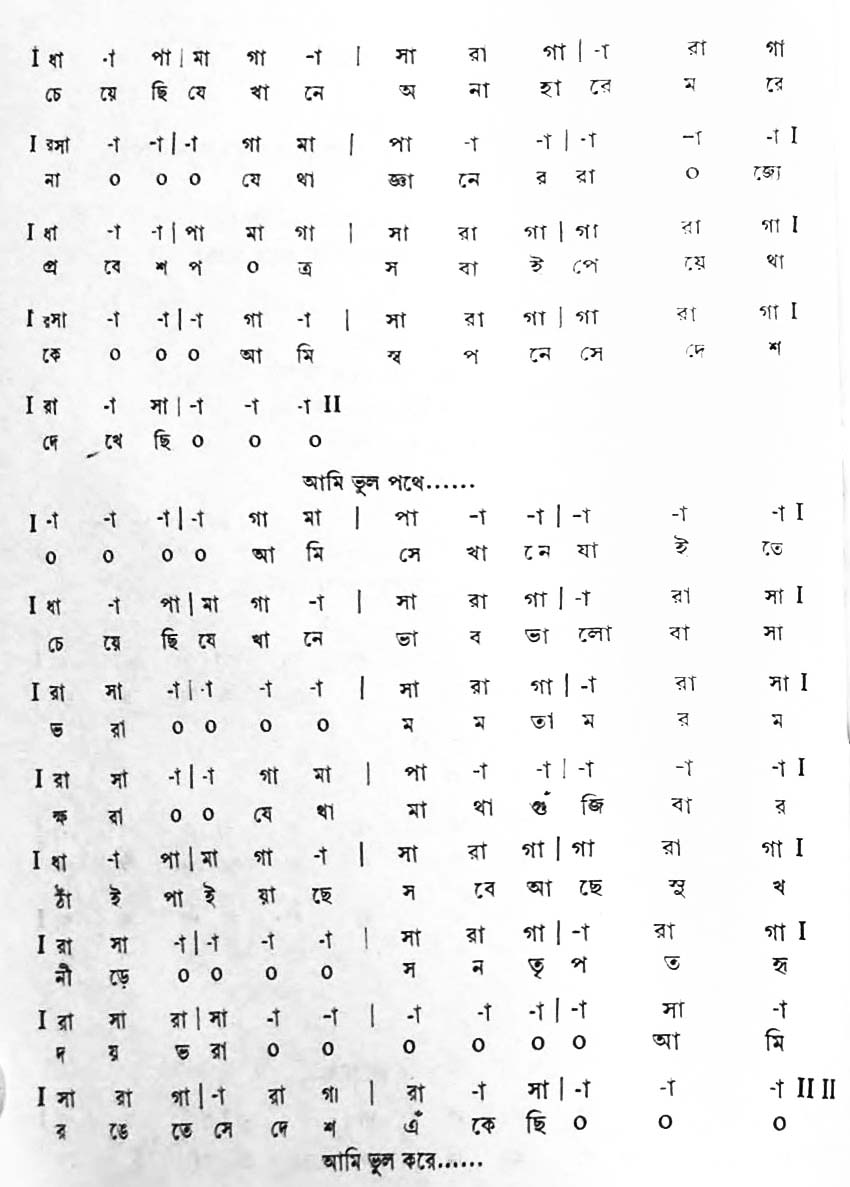 I ধা -া পা | মা গা -া | সা রা গা | -া রা গা
চে য়ে ছি যে খা নে অ না হা রে ম রে
I রসা -া -া | -া গা মা | পা -া -া | -া -া -া I
না ০ ০ ০ যে থা জ্ঞা নে র রা ০ জ্যে
I ধা -া -া | পা মা গা | সা রা গা | গা রা গা I
প্র বে শ প ০ ত্র স বা ই পে য়ে থা
I রসা -া -া | -া গা -া | সা রা গা | গা রা গা I
কে ০ ০ ০ আ মি স্ব প নে সে দে শ
I রা -া সা | -া -া -া II
দে খে ছি ০ ০ ০
আমি ভুল পথে......
I -া -া -া | -া গা মা | পা -া -া | -া -া -া I
০ ০ ০ ০ আ মি সে খা নে যা ই তে
I ধা -া পা | মা গা -া | সা রা গা | -া রা সা I
চে য়ে ছি যে খা নে ভা ব ভা লো বা সা
I রা সা -া | -া -া -া | সা রা গা | -া রা সা I
ভ রা ০ ০ ০ ০ ম ম তা ম র ম
I রা সা -া | -া গা মা | পা -া -া | -া -া -া I
ক্ষ রা ০ ০ যে থা মা থা গুঁ জি বা র
I ধা -া পা | মা গা -া | সা রা গা | গা রা গা I
ঠাঁ ই পা ই য়া ছে স বে আ ছে সু খ
I রা সা -া | -া -া -া | সা রা গা | -া রা গা I
নী ড়ে ০ ০ ০ ০ স ন তৃ প ত হৃ
I রা সা রা | সা -া -া | -া -া -া | -া সা -া
দ য় ভ রা ০ ০ ০ ০ ০ ০ আ মি
I সা রা গা | -া রা গা | রা -া সা | -া -া -া II II
র ঙে তে সে দে শ এঁ কে ছি ০ ০ ০
আমি ভুল করে......